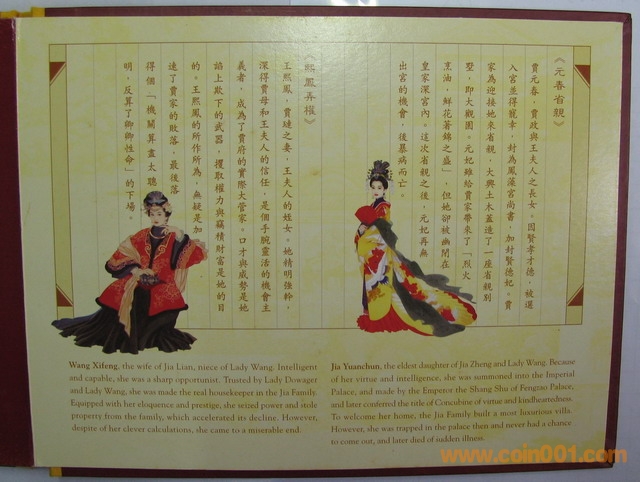 《元春省親》
賈元春，賈政與王夫人之長女。因賢孝才德，被選
入宮並得寵幸，封為鳳藻宮尚書，加封賢德妃。賈
家為迎接她來省親，大興土木蓋造了一座省親別
墅，即大觀園。元妃雖給賈家帶來了「烈火
烹油，鮮花著錦之盛」，但她卻被幽閉在
皇家深宮內。這次省親之後，元妃再無
出宮的機會，後暴病而亡。
《熙鳳弄權》
王熙鳳，賈璉之妻，王夫人的姪女。她精明強幹，
深得賈母和王夫人的信任，是個手腕靈活的機會主
義者，成為了賈府的實際大管家。口才與威勢是她
諂上欺下的武器，攫取權力與竊積財富是她的目
的。王熙鳳的所作所為，無疑是加
速了賈家的敗落，最後落
得個「機關算盡太聰
明，反算了卿卿性命」的下場。
Wang Xifeng, the wife of Jia Lian, niece of Lady Wang. Intelligent
and capable, she was a sharp opportunist. Trusted by Lady Dowager
and Lady Wang, she was made the real housekeeper in the Jia Family.
Equipped with her eloquence and prestige, she seized power and stole
property from the family, which accelerated its decline. However,
despite of her clever calculations, she came to a miserable end.
Jia Yuanchun, the eldest daughter of Jia Zheng and Lady Wang. Because
of her virtue and intelligence, she was summoned into the Imperial
Palace, and made by the Emperor the Shang Shu of Fengzao Palace,
and later conferred the title of Concubine of virtue and kindheartedness.
To welcome her home, the Jia Family built a most luxurious villa.
However, she was trapped in the palace then and never had a chance
to come out, and later died of sudden illness.
www.coin001.com